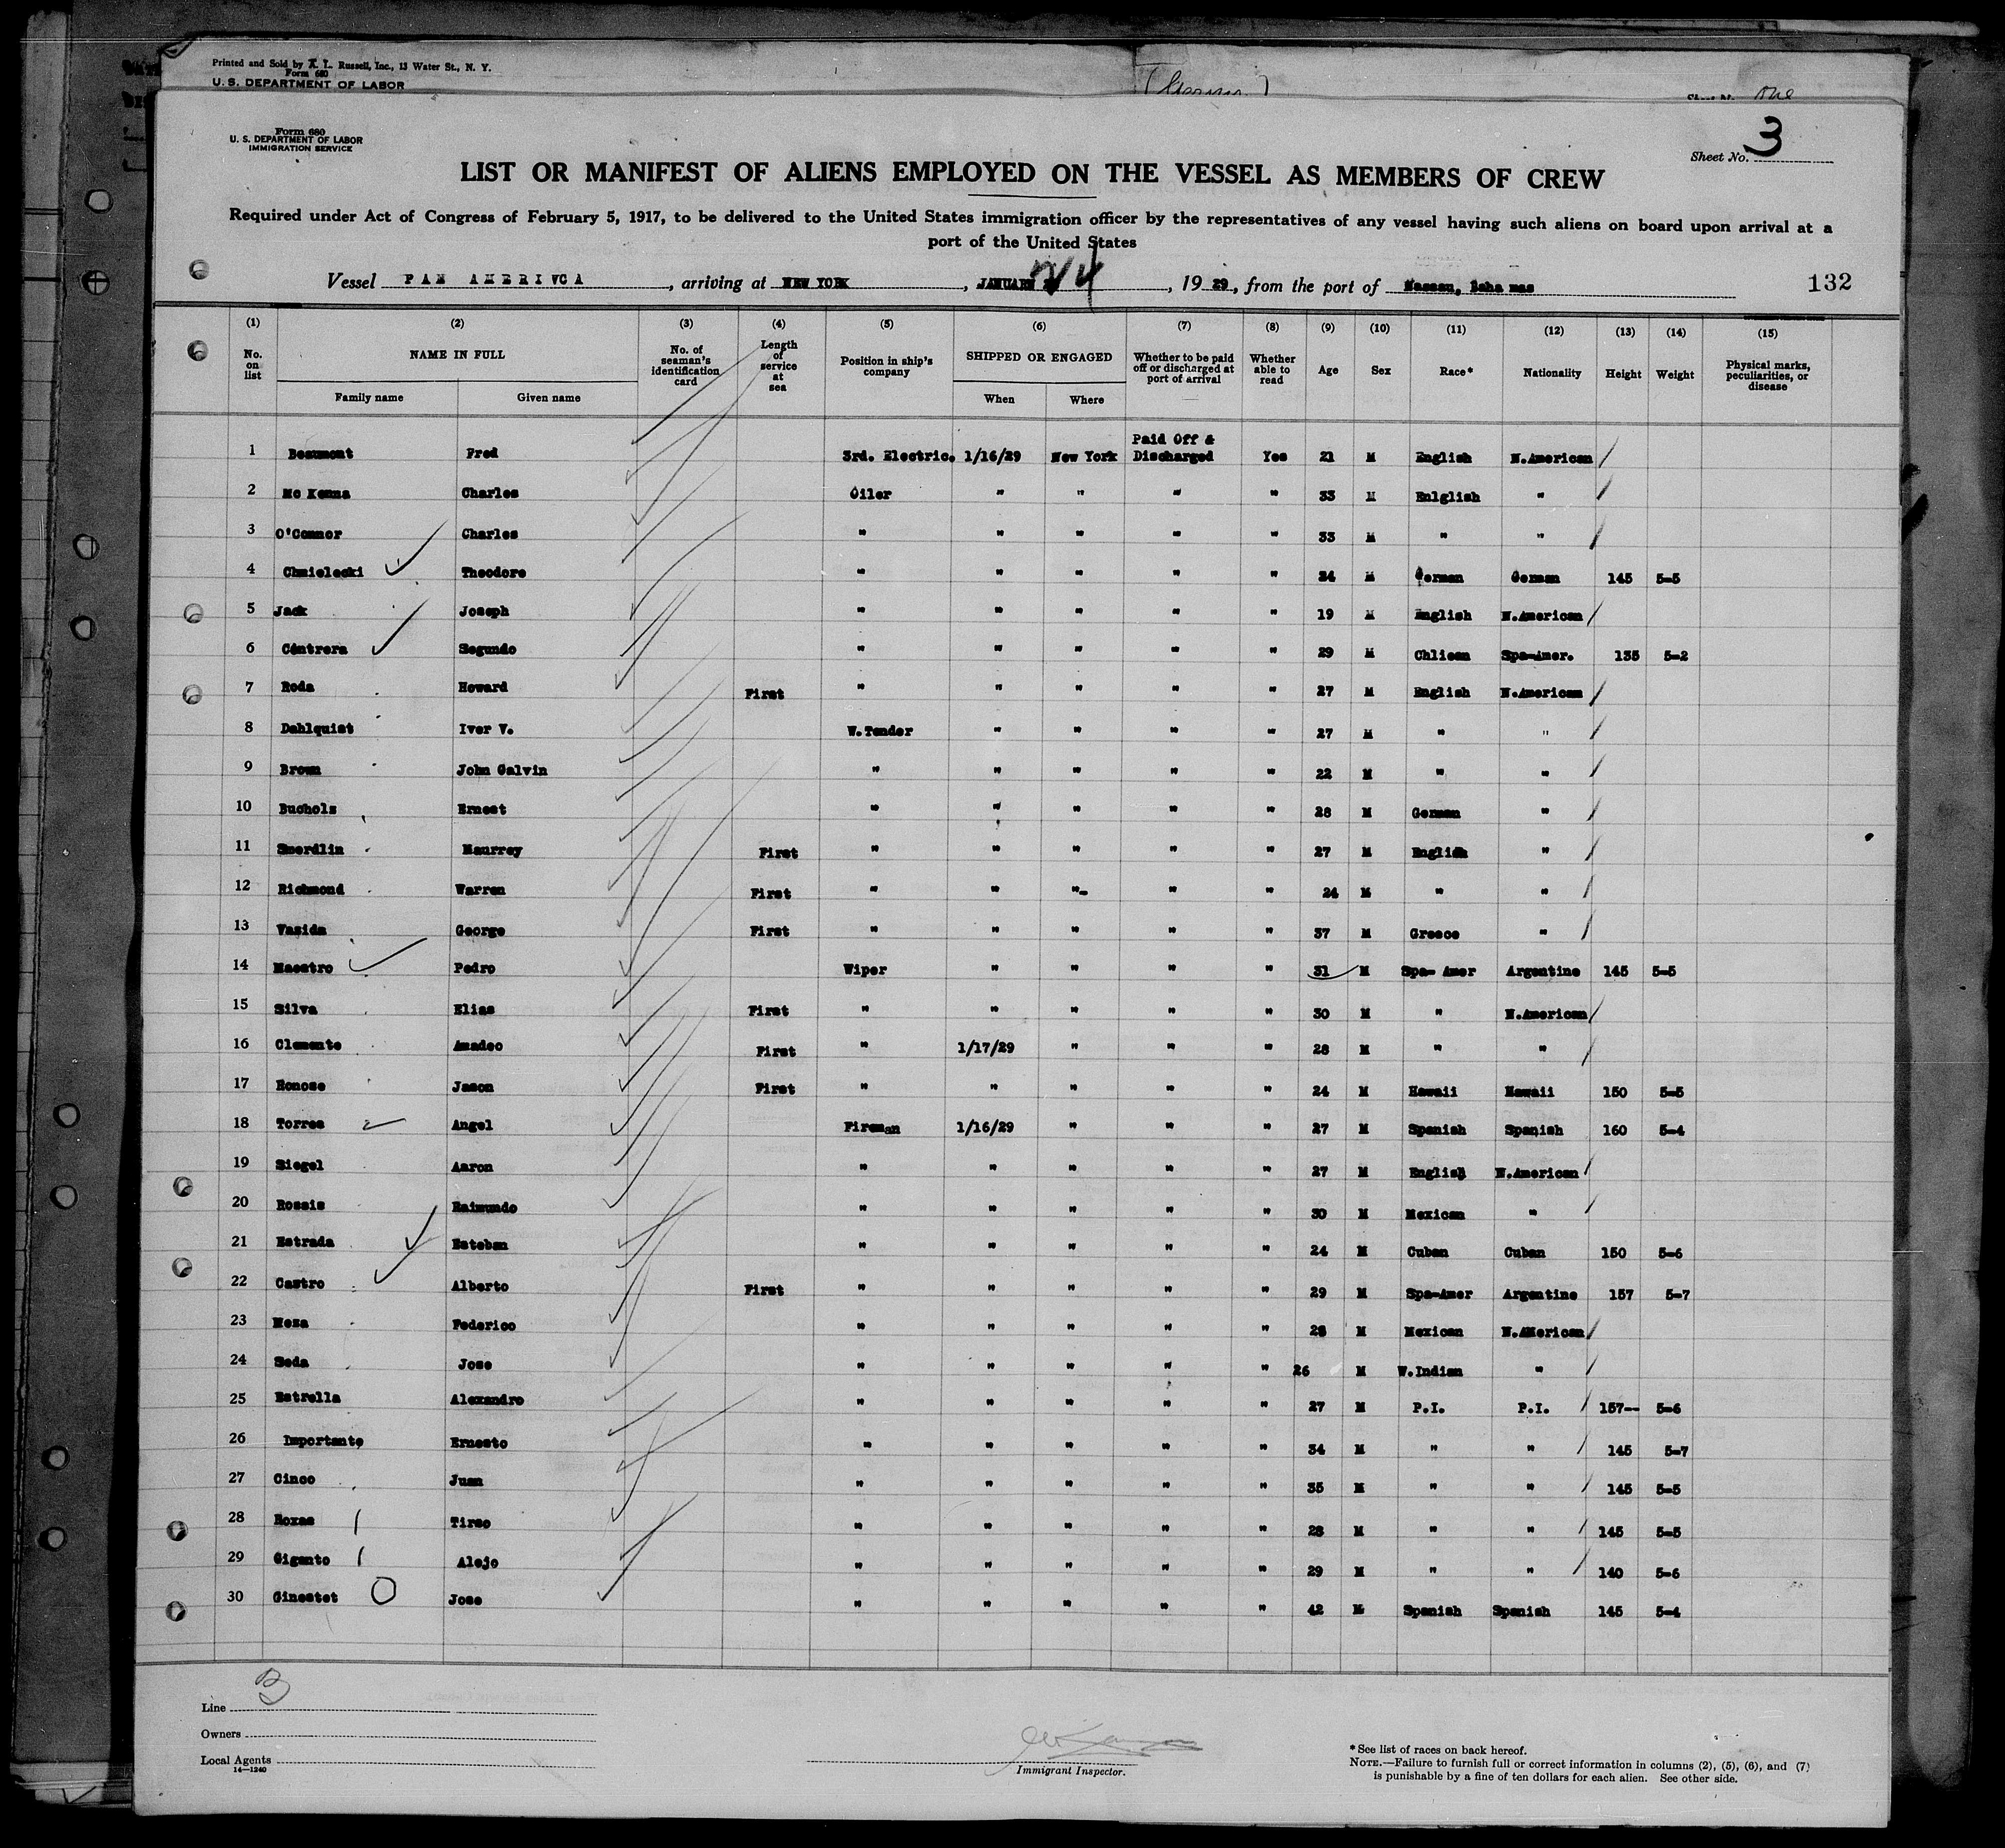 Printed and Sold by A. L. Russell, Inc., 13 Water St., N. Y.
Form 680
U. S. DEPARTMENT OF LABOR
Sheet No. one
Form 680
U. S. DEPARTMENT OF LABOR
IMMIGRATION SERVICE
Sheet No. 3
LIST OR MANIFEST OF ALIENS EMPLOYED ON THE VESSEL AS MEMBERS OF CREW
Required under Act of Congress of February 5, 1917, to be delivered to the United States immigration officer by the representatives of any vessel having such aliens on board upon arrival at a
port of the United States
Vessel PAN AMERIVCA , arriving at NEW YORK , JANUARY 24 , 19 29 , from the port of Nassau, Baha mas 132
(1) (2) (3) (4) (5) (6) (7) (8) (9) (10) (11) (12) (13) (14) (15)
No. on list NAME IN FULL No. of seaman's identification card Length of service at sea Position in ship's company SHIPPED OR ENGAGED Whether to be paid off or discharged at port of arrival Whether able to read Age Sex Race* Nationality Height Weight Physical marks, peculiarities, or disease
Family name Given name When Where
1 Beaumont Fred 3rd. Electric. 1/16/29 New York Paid Off & Discharged Yes 21 M English N.American /
2 Mc Kenna Charles Oiler " " " " 33 M Enlglish " /
3 O'Connor Charles " " " " " 33 M " " /
4 Chmielecki Theodore " " " " " 24 M German German 145 5-5
5 Jack Joseph " " " " " 19 M English N.American /
6 Contrera Segundo " " " " " 29 M Chliean Spa-Amer. 135 5-2
7 Roda Howard First " " " " " 27 M English N.American /
8 Dahlquist Iver V. W.Tender " " " " 27 M " " /
9 Brown John Galvin " " " " " 22 M " " /
10 Buchols Ernest " " " " " 28 M German " /
11 Smerdlin Maurrey First " " " " " 27 M English " /
12 Richmond Warren First " " "- " " 24 M " " /
13 Vasida George First " " " " " 37 M Greece " /
14 Maestro Pedro Wiper " " " " 31 M Spa- Amer Argentine 145 5-5
15 Silva Elias First " " " " " 30 M " N.American /
16 Clemente Amadeo First " 1/17/29 " " " 28 M " " /
17 Ronose Jason First " " " " " 24 M Hawaii Hawaii 150 5-5
18 Torres Angel Fireman 1/16/29 " " " 27 M Spanish Spanish 160 5-4
19 Siegel Aaron " " " " " 27 M English N.American /
20 Rossis Raimundo " " " " " 30 M Mexican " /
21 Estrada Esteban " " " " " 24 M Cuban Cuban 150 5-6
22 Castro Alberto First " " " " " 29 M Spa-Amer Argentine 157 5-7
23 Meza Federico " " " " " 28 M Mexican N.AMerican /
24 Seda Jose " " " " " 26 M W.Indian " /
25 Estrella Alexandro " " " " " 27 M P.I. P.I. / 157-- 5-6
26 Importante Ernesto " " " " " 34 M " " / 145 5-7
27 Cinco Juan " " " " " 35 M " " / 145 5-5
28 Roxas Tirso " " " " " 28 M " " / 145 5-5
29 Giganto Alejo " " " " " 29 M " " / 140 5-6
30 Ginestet Jose " " " " " 42 M Spanish Spanish 145 5-4
Line B
Owners
Local Agents
14—1240
Immigrant Inspector.
*See list of races on back hereof.
NOTE.—Failure to furnish full or correct information in columns (2), (5), (6), and (7)
is punishable by a fine of ten dollars for each alien. See other side.